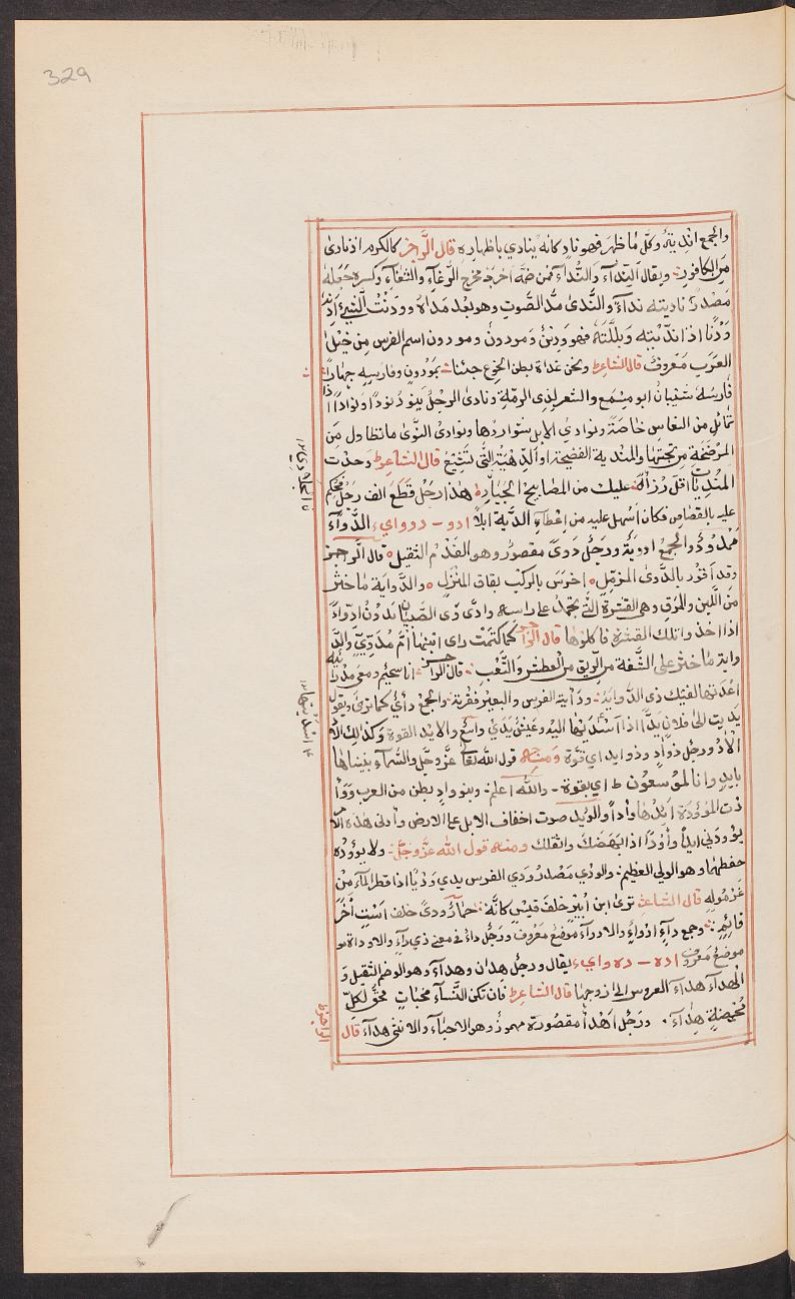 329
والجمع اندية وكل ما ظهر فهو ناد كانه ينادي باظهاره قال الراجز كالكرم اذ نادى
من الكافور ويقال النداء والنداء فمن ضمه اخرجه مخرج الرغاء والثغاء وكسره جعله
مصدر ناديته نداء والندى مد الصوت وهو بعد مداه وودنت الشيء ادنه
ودنا اذا نديته وبللته فهو ودين ومودون ومودون اسم الفرس من خيل
العرب معروف قال الشاعر ونحن غداة بطن الجزع جئنا بمودون وفارسه جهارا
فارسه شيبان ابو مسمع والشعر لذي الرمة ونادى الرجل ينود نودا ونوادا اذا
تمايل من النعاس خاصة ونوادي الابل شواردها ونوادى النوى ما تطاير من
المرضخة من تحتها والمندية الفضيحة او الدهية التي قال الشاعر وحدث
المنديات اقل رزأ عليك من المصابيح الجلاد هذا رجل قطع الف رجل فحكم
عليه بالقصاص فكان اسهل عليه من اعطاء الدية ابلا ادو - دوواي الدواء
ممدود والجمع ادوية ورجل دوى مقصور وهو الفدم الثقيل قال الراجز
وقد اقود بالدوى المزمل اخرس بالركب بقاق المنزل والدواية ما خثر
من اللبن والمرق وهي القشرة التي تحمل على راسه وادى دى الصبيان يدوون ادواء
اذا اخذوا تلك القشرة فاكلوها قال الراجز كما كتمت داء ابنها ام مدوي والد
واية ما خثر على الشفة من الريق من العطش والتعب قال الراجز انا سحيم ومعي مدرايه
اعددتها لفيك ذي الدواية ودايت الفرس والبعير فقرته والجمع دأي كما ترى ويقول
يديت الى فلان يدا اذا اسديتها اليه وعيش يدي واسع والايد القوة وكذلك الا
الاد ورجل ذو اد وذو ايد اي قوة ومنه قول الله تعالى عز وجل والسماء بنيناها
بايد وانا لموسعون ط اي بقوة والله اعلم وبنو واد بطن من العرب ووأ
دت الموؤدة ائدها وأدا والوئيد صوت اخفاف الابل على الارض وأدنى هذه الا
يؤودني ايدا وأودا اذا ابهضك واثقلك ومنه قول الله عز وجل ولا يوؤده
حفظهما وهو العلي العظيم والودي مصدر ودي الفرس يدي وديا اذا قطر الماء من
غرموله قال الشاعر ترى ابن ابير خلف قيس كانه حمار ودى خلف است اخر
قائم وجمع داء ادواء والادواء موضع معروف ورجل داء في معنى ذي داء والاوداة مو
موضع معروف اده - ده واي يقال ورجل هدان وهداء وهو الوخم الثقيل و
الهداء هداء العروس الى زوجها قال الشاعر فان تكن النساء مخبات فحق لكل
محصنة هداء . ورجل اهدأ مقصورة مهموز وهو الاحناء والانثى هداء قال
الراجز